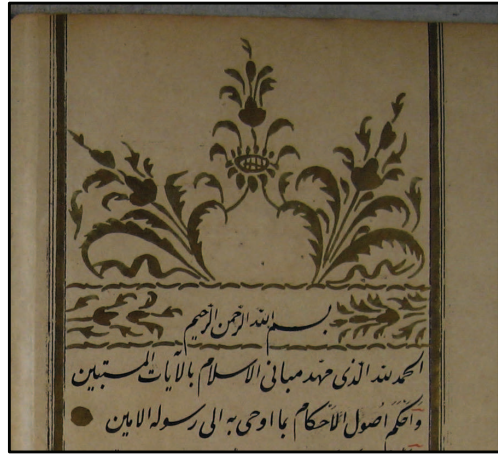 بسم الله الرحمن الرحيم
الحمد لله الذى مهد مبانى الاسلام بالآيات المستبين
وَاَحْكَمَ اُصول الاَحْكام بما اوحى به الى رسوله الامين